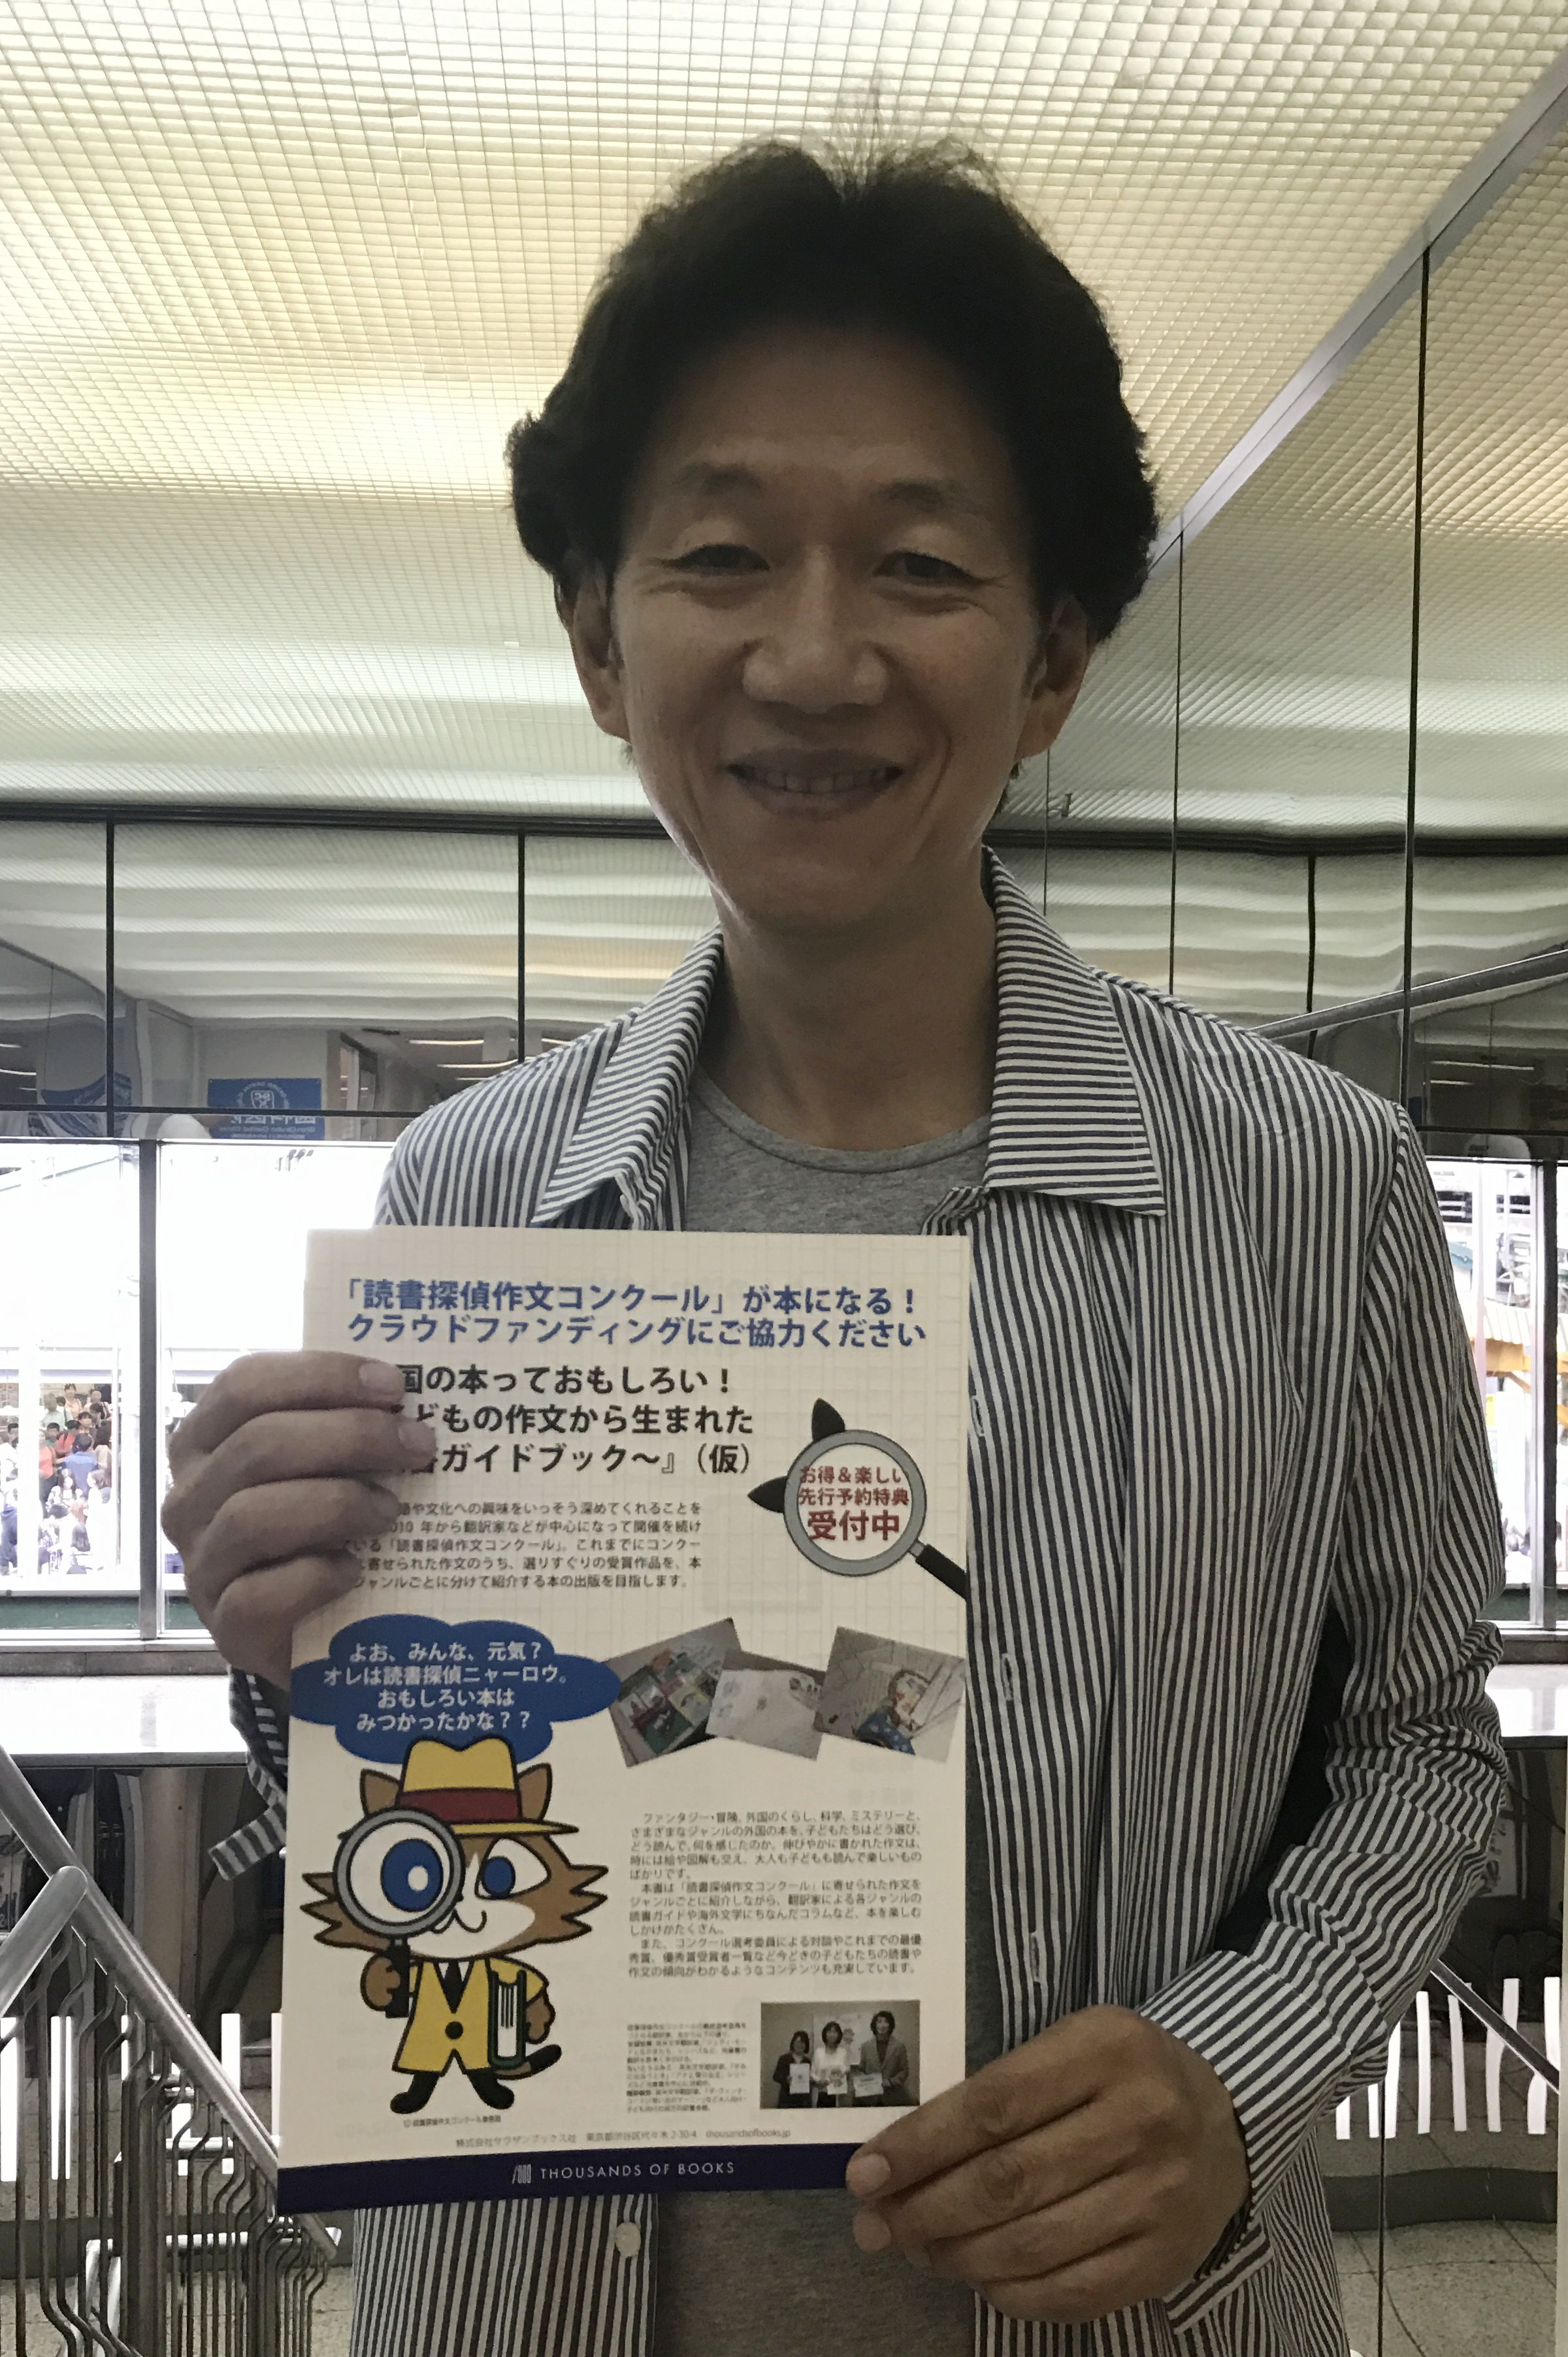 「読書探偵作文コンクール」が本になる！
クラウドファンディングにご協力ください
国の本っておもしろい！
どもの作文から生まれた
ガイドブック〜』（仮）
お得＆楽しい
先行予約特典
受付中
や文化への興味をいっそう深めてくれることを
年から翻訳家などが中心になって開催を続け
いる「読書探偵作文コンクール」。これまでにコンクー
寄せられた作文のうち、選りすぐりの受賞作品を、本
ジャンルごとに分けて紹介する本の出版を目指します。
よお、みんな、元気？
オレは読書探偵ニャーロウ。
おもしろい本は
みつかったかな？？
ファンタジー・冒険、外国のくらし、科学、ミステリーと、
さまざまなジャンルの外国の本を、子どもたちはどう選び、
どう読んで、何を感じたのか。伸びやかに書かれた作文は、
時には絵や図解も交え、大人も子どもも読んで楽しいもの
ばかりです。
本書は「読書探偵作文コンクール」に寄せられた作文を
ジャンルごとに紹介しながら、翻訳家による各ジャンルの
読書ガイドや海外文学にちなんだコラムなど、本を楽しむ
しかけがたくさん。
また、コンクール選考委員による対談やこれまでの最優
秀賞、優秀賞受賞者一覧など今どきの子どもたちの読書や
作文の傾向がわかるようなコンテンツも充実しています。
読書探偵作文コンクール事務局
株式会社サウザンブックス社　東京都渋谷区代々木 2-30-4　thousandsofbooks.jp
THOUSANDS OF BOOKS